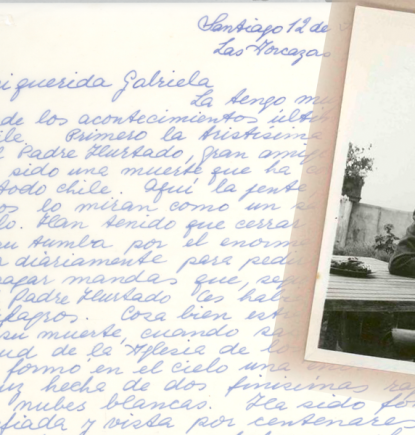 Santiago 12 de
Las Torcazas
querida Gabriela
La tengo mu
de los acontecimientos últi
ile Primero la tristísima
l Padre Hurtado, gran amig
sido una muerte que ha
todo Chile. Aquí la jente,
os lo miran como un
lo. Han tenido que cerrar
su tumba por el enorme
diariamente para pedir
pagar mandas que,
Padre Hurtado les
lagros. Cosa bien
su muerte, cuando
ud de la Iglesia de
formo en el cielo una
uz hecha de dos finísimas
nubes blancas. Ha sido fo
fiada y vista por centenare